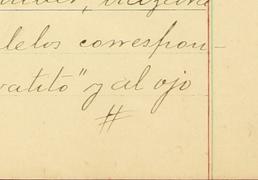 lelos correspon-
ratito" y al ojo
#